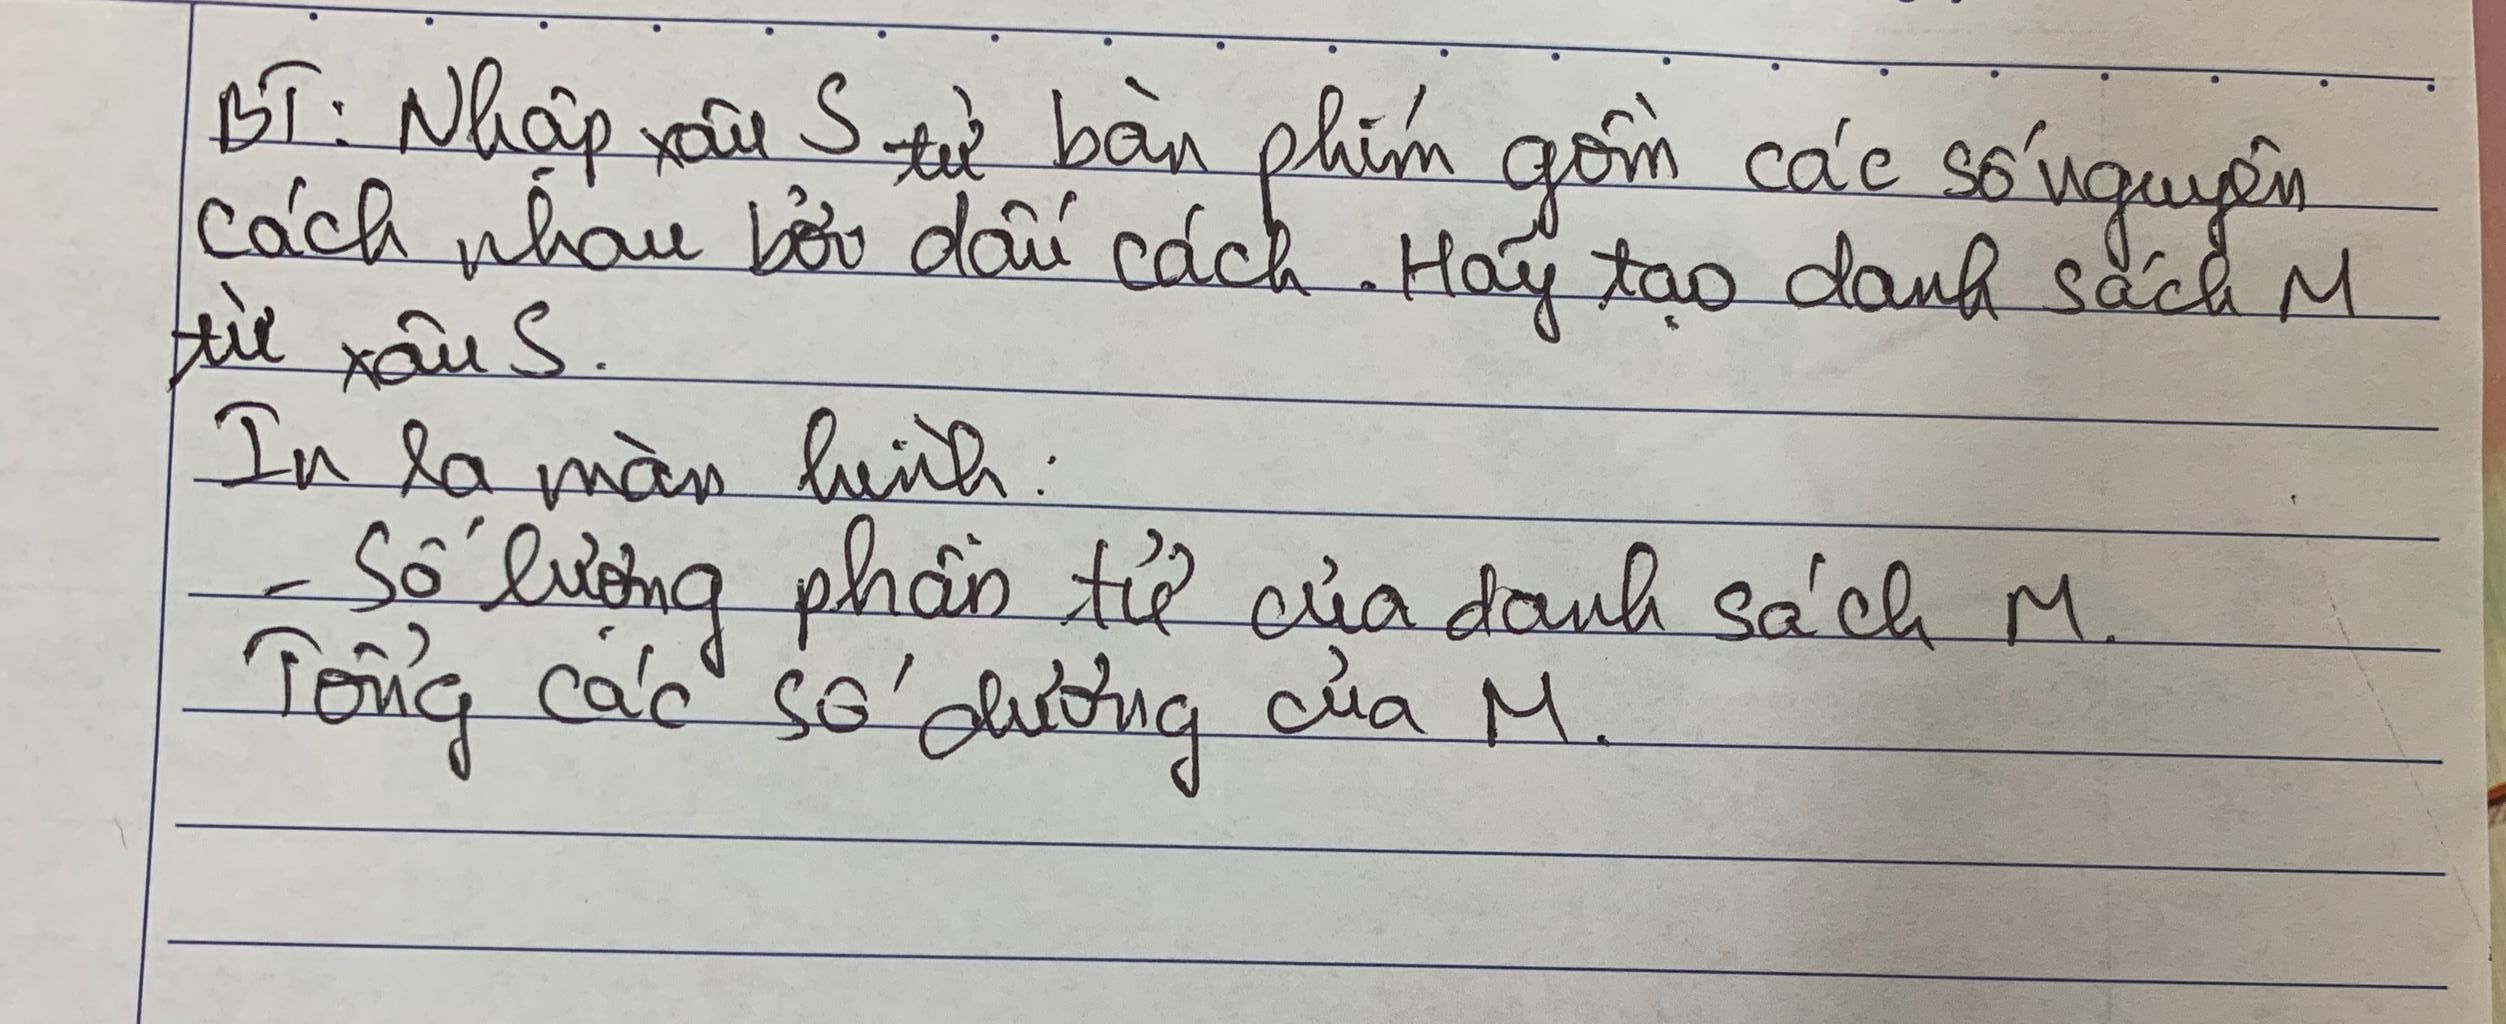 BT: Nhập xâu S từ bàn phím gồm các số nguyên
cách nhau bởi dấu cách. Hãy tạo danh sách M
từ xâu S.
In ra màn hình:
- Số lượng phần tử của danh sách M.
Tổng các số dương của M.